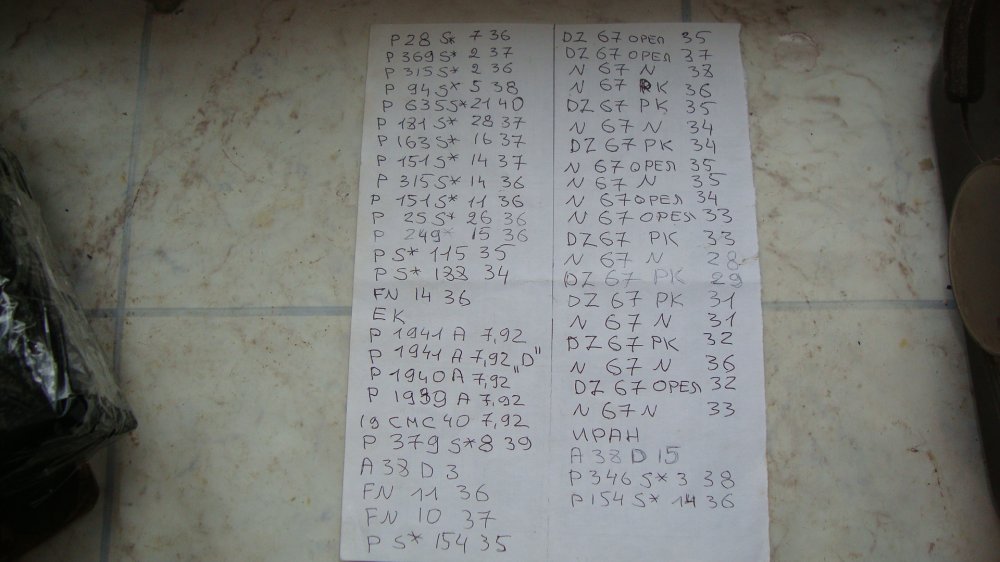 P 28 S* 7 36
P 369 S* 2 37
P 315 S* 2 36
P 94 S* 5 38
P 635 S* 21 40
P 181 S* 28 37
P 163 S* 16 37
P 151 S* 14 37
P 315 S* 14 36
P 151 S* 11 36
P 25 S* 26 36
P 249* 15 36
P S* 115 35
P S* 188 34
FN 14 36
EK
P 1941 A 7,92
P 1941 A 7,92 „D"
P 1940 A 7,92 "
P 1939 A 7,92
19 CMC 40 7,92
P 379 S* 8 39
A 38 D 3
FN 11 36
FN 10 37
P S* 154 35
DZ 67 ОРЕЛ 35
DZ 67 ОРЕЛ 37
N 67 N 38
N 67 PK 36
DZ 67 PK 35
N 67 N 34
DZ 67 PK 34
N 67 ОРЕЛ 35
N 67 N 35
N 67 ОРЕЛ 34
N 67 ОРЕЛ 33
DZ 67 PK 33
N 67 N 28
DZ 67 PK 29
DZ 67 PK 31
N 67 N 31
DZ 67 PK 32
N 67 N 36
DZ 67 ОРЕЛ 32
N 67 N 33
ИРАН
A 38 D 15
P 346 S* 3 38
P 154 S* 14 36